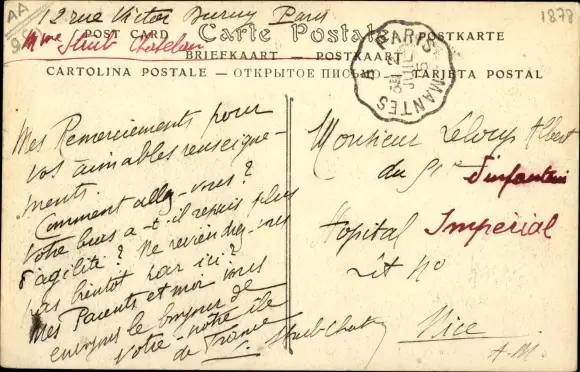 12 rue Victor Duruy Paris
AA
1878
POST CARD
Carte Postale
POSTKARTE
Mme Staub Chatelain
BRIEFKAART — POSTKAART
CARTOLINA POSTALE — ОТКРЫТОЕ ПИСЬМО — TARJETA POSTAL
PARIS
MANTES
Mes Remerciements pour
vos aimables renseigne-
ments.
Comment allez-vous?
Votre bras a-t-il repris plus
d'agilité? Ne reviendrez-vous
pas bientôt par ici?
Mes Parents et moi vous
envoyons le bonjour de
votre - notre île
de France
Monsieur Leloup Albert
du d'infanterie
Hopital Impérial
Lit No
Nice
A-M.